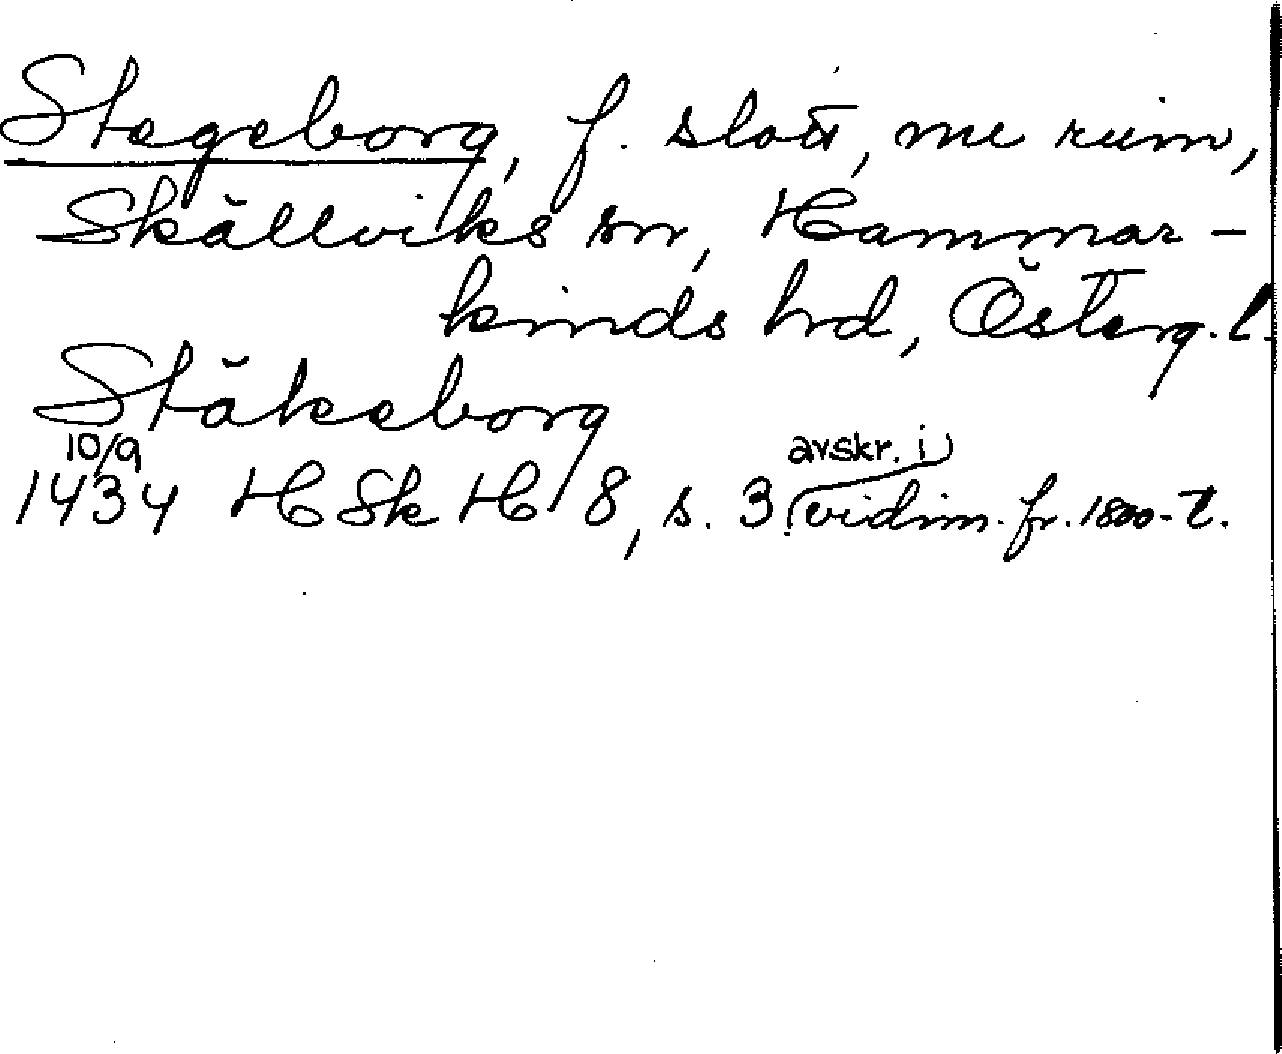 Stegeborg, f. slott, nu ruin,
Skällviks sn, Hammar-
kinds hd, Österg. l.
Stäkeborg
10/9
1434 H Sk H 8, s. 3 (avskr. i) vidim. fr. 1800-t.